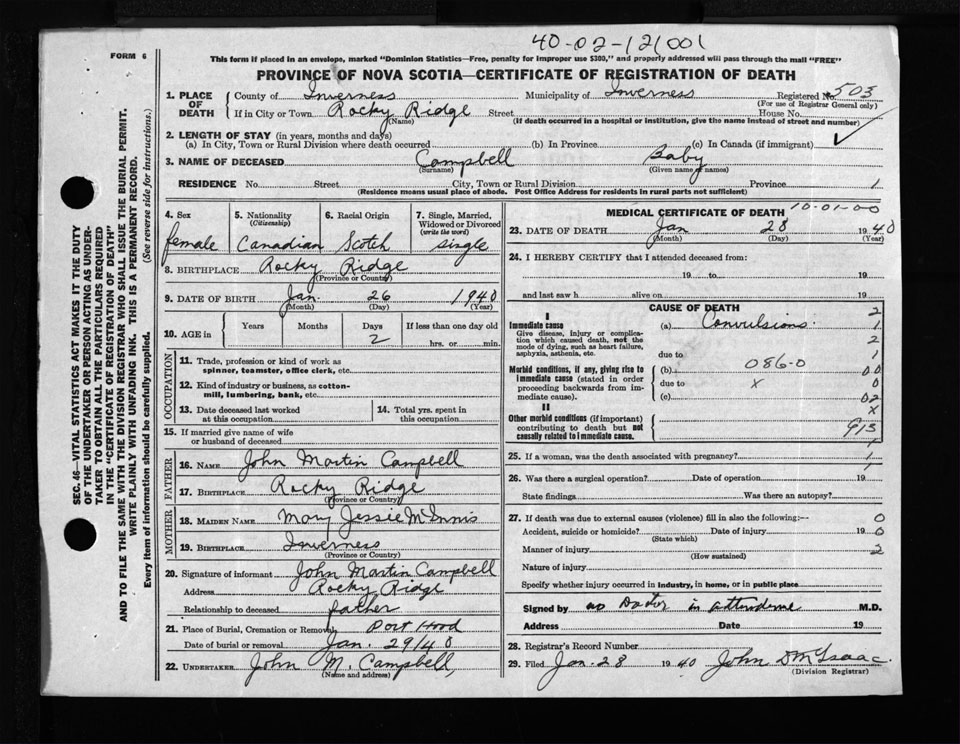 40-02-121001
FORM 6
This form if placed in an envelope, marked "Dominion Statistics—Free, penalty for improper use $300," and properly addressed will pass through the mail "FREE"
PROVINCE OF NOVA SCOTIA—CERTIFICATE OF REGISTRATION OF DEATH
1. PLACE OF DEATH
County of Inverness Municipality of Inverness Registered No. 503
(For use of Registrar General only)
If in City or Town Rocky Ridge Street House No.
(Name) (If death occurred in a hospital or institution, give the name instead of street and number)
2. LENGTH OF STAY (in years, months and days)
(a) In City, Town or Rural Division where death occurred (b) In Province (c) In Canada (if immigrant)
3. NAME OF DECEASED Campbell Baby
(Surname) (Given name or names)
RESIDENCE No. Street City, Town or Rural Division Province 1
(Residence means usual place of abode. Post Office Address for residents in rural parts not sufficient)
4. Sex female
5. Nationality (Citizenship) Canadian
6. Racial Origin Scotch
7. Single, Married, Widowed or Divorced (write the word) single
8. BIRTHPLACE Rocky Ridge
(Province or Country)
9. DATE OF BIRTH Jan. 26 1940
(Month) (Day) (Year)
10. AGE in Years Months Days If less than one day old
2 hrs. or min.
OCCUPATION
11. Trade, profession or kind of work as spinner, teamster, office clerk, etc.
12. Kind of industry or business, as cotton-mill, lumbering, bank, etc.
13. Date deceased last worked at this occupation
14. Total yrs. spent in this occupation
15. If married give name of wife or husband of deceased
FATHER
16. NAME John Martin Campbell
17. BIRTHPLACE Rocky Ridge
(Province or Country)
MOTHER
18. MAIDEN NAME Mary Jessie McInnis
19. BIRTHPLACE Inverness
(Province or Country)
20. Signature of informant John Martin Campbell
Address Rocky Ridge
Relationship to deceased father
21. Place of Burial, Cremation or Removal Port Hood
Date of burial or removal Jan. 29/40
22. UNDERTAKER John M. Campbell
(Name and address)
MEDICAL CERTIFICATE OF DEATH 10-01-00
23. DATE OF DEATH Jan 28 1940
(Month) (Day) (Year)
24. I HEREBY CERTIFY that I attended deceased from:
19 to 19
and last saw h alive on 19
CAUSE OF DEATH 2
I
Immediate cause (a) Convulsions. 1
Give disease, injury or complication which caused death, not the mode of dying, such as heart failure, asphyxia, asthenia, etc. 2
due to 1
Morbid conditions, if any, giving rise to immediate cause (stated in order proceeding backwards from immediate cause).
(b) 086-0 00
due to x 0
(c) 02
II x
Other morbid conditions (if important) contributing to death but not causally related to immediate cause. 913
25. If a woman, was the death associated with pregnancy? 1
26. Was there a surgical operation? Date of operation 19
State findings Was there an autopsy?
27. If death was due to external causes (violence) fill in also the following:— 0
Accident, suicide or homicide? Date of injury 19 0
(State which)
Manner of injury 2
(How sustained)
Nature of injury
Specify whether injury occurred in industry, in home, or in public place
Signed by no Doctor in attendence M.D.
Address Date 19
28. Registrar's Record Number
29. Filed Jan-28 1940 John D McIsaac.
(Division Registrar)
SEC. 46—VITAL STATISTICS ACT MAKES IT THE DUTY
OF THE UNDERTAKER OR PERSON ACTING AS UNDER-
TAKER TO OBTAIN ALL THE PARTICULARS REQUIRED
IN THE "CERTIFICATE OF REGISTRATION OF DEATH"
AND TO FILE THE SAME WITH THE DIVISION REGISTRAR WHO SHALL ISSUE THE BURIAL PERMIT.
WRITE PLAINLY WITH UNFADING INK. THIS IS A PERMANENT RECORD.
Every item of information should be carefully supplied. (See reverse side for instructions.)